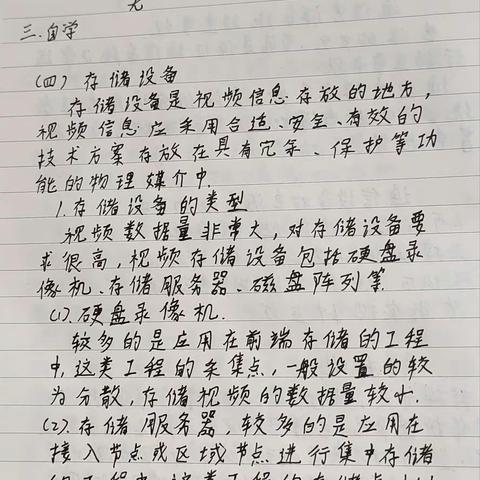 无
三.自学
(四)存储设备
存储设备是视频信息存放的地方,
视频信息应采用合适、安全、有效的
技术方案存放在具有冗余、保护等功
能的物理媒介中.
1.存储设备的类型
视频数据量非常大,对存储设备要
求很高,视频存储设备包括硬盘录
像机、存储服务器、磁盘阵列等.
(1).硬盘录像机.
较多的是应用在前端存储的工程
中,这类工程的采集点,一般设置的较
为分散,存储视频的数据量较小.
(2).存储服务器,较多的是应用在
接入节点或区域节点进行集中存储
的工程中,这类工程的存储点